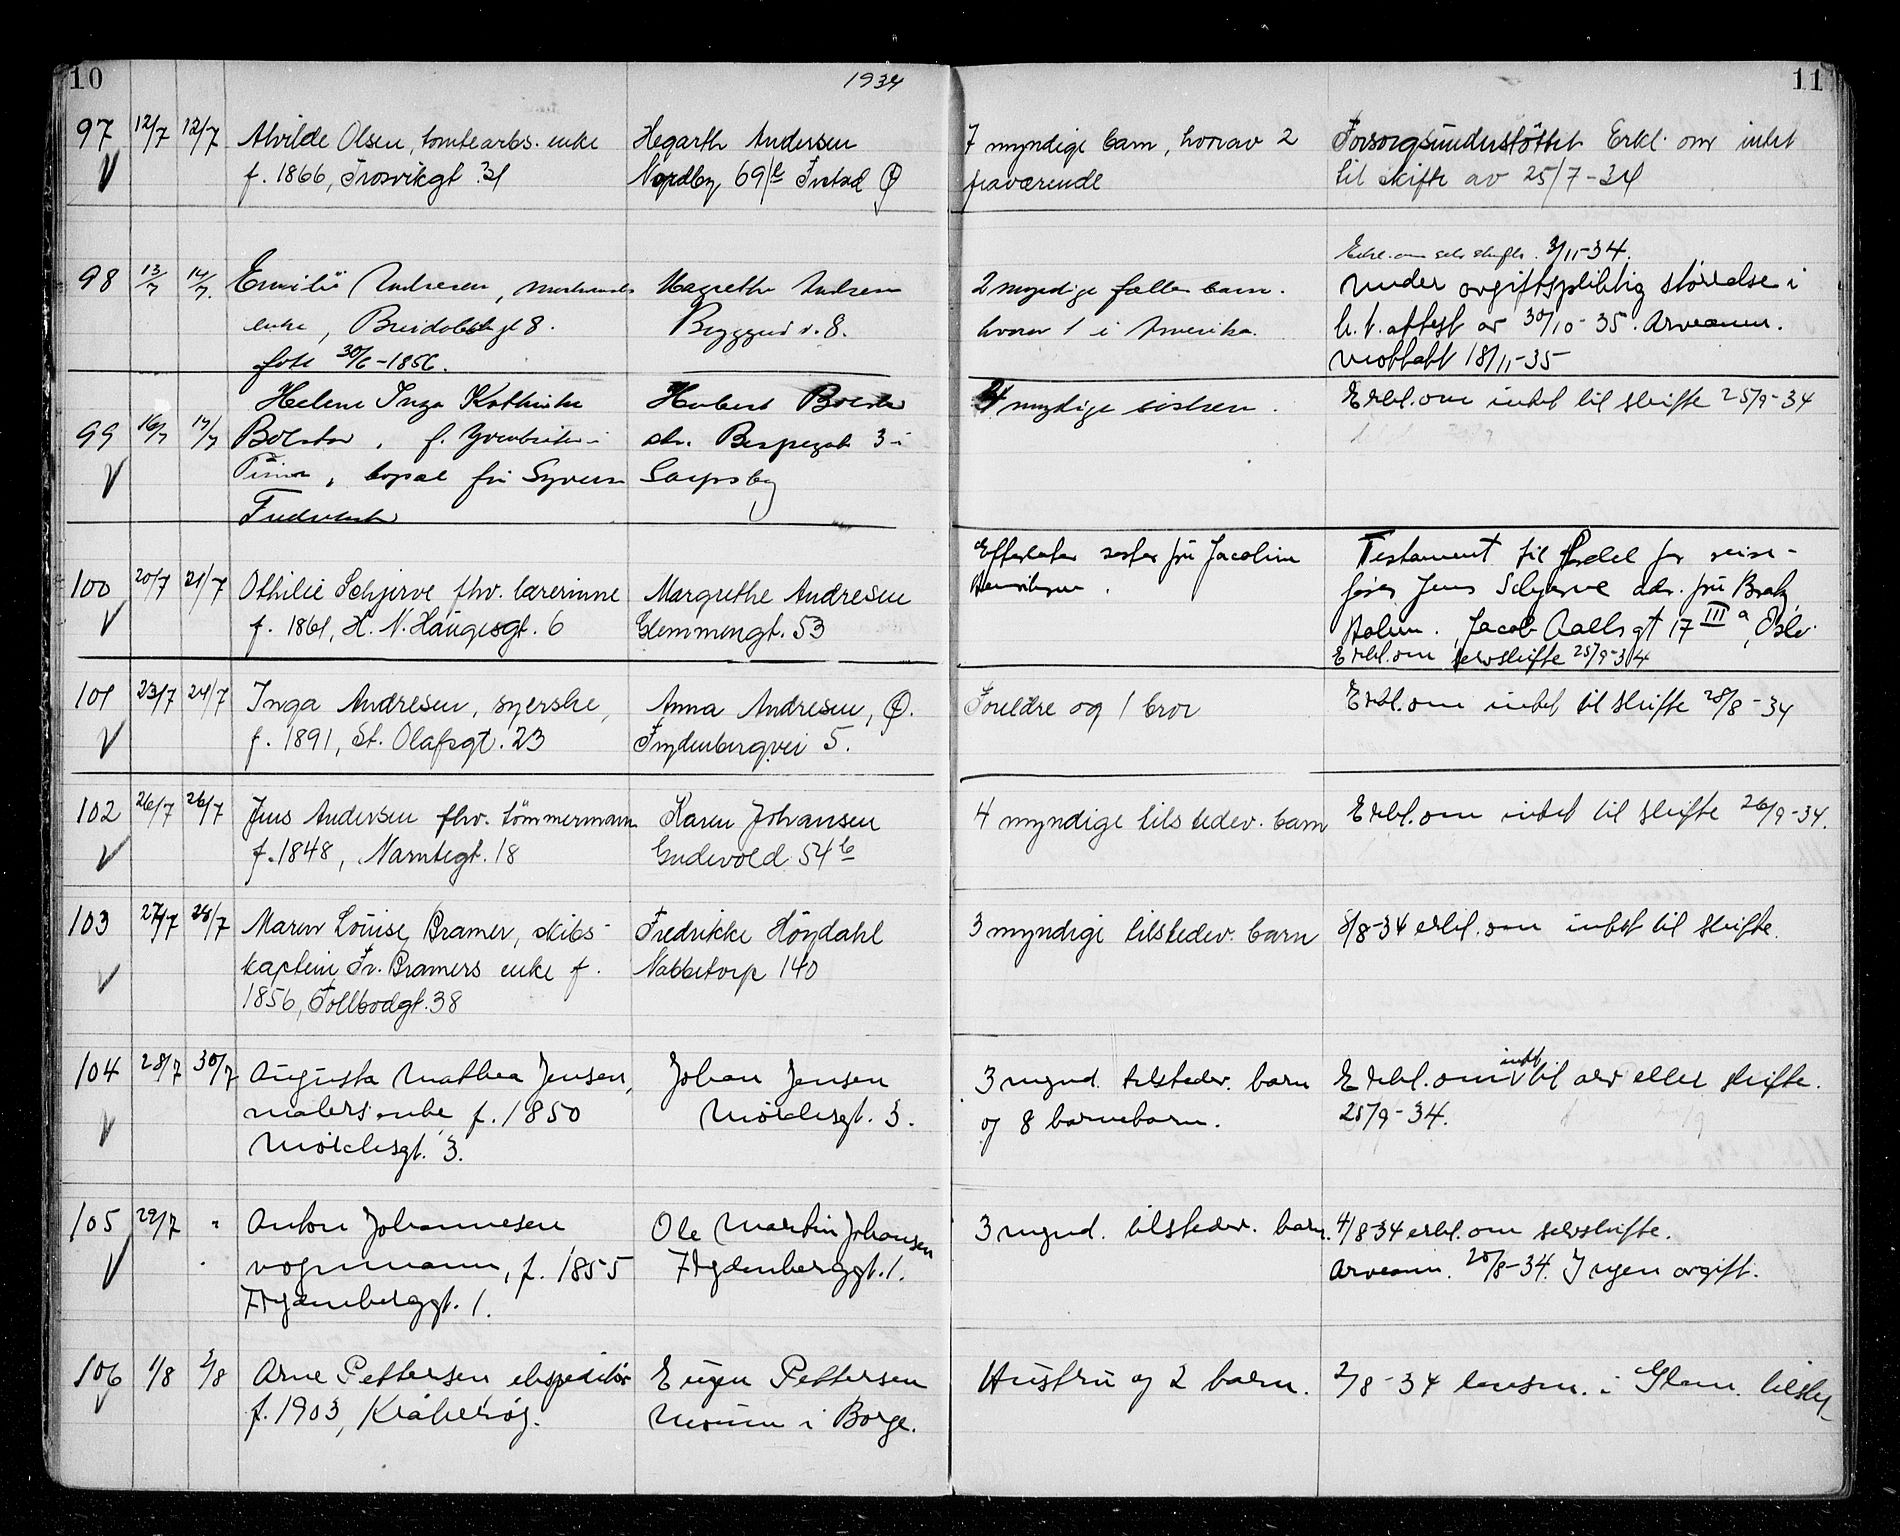 10
1934
11
97 12/7 12/7 Alvilde Olsen, tomtearbs. enke
f. 1866, Trosvikgt. 31
Hegarth Andersen
Nordby, 69 b Fr.stad Ø
7 myndige barn, hvorav 2
fraværende
Forsorgsunderstöttet Erkl. om intet
til skifte av 25/7-34
98 13/7 14/7. Emilie Andresen,
enke, gt 8.
født 30/6-1856.
Magrethe Andresen
Bryggeriv. 8.
2 myndige felles barn.
hvorav 1 i Amerika.
Erkl. om selvskifte. 3/11-34.
under avgiftspliktig størrelse i
h. t. attest av 30/10-35. Arveanm.
mottatt 18/11-35
99 16/7 17/7 Helene Inga Kathinka
Bolstad, f.
bopæl fru Syversen
Fredrikstad
Hubert Bolstad
adr. 3 i
Sarpsborg
4 myndige søsken.
Erkl. om intet til skifte 25/9-34
100 20/7 21/7 Othilie Schjerve fhv. lærerinne
f. 1861, H. N. Haugesgt. 6
Margrethe Andresen
Glemmengt. 53
Efterlater søster fru Jacoline
Henriksen.
Testament til fordel for reise-
fører Jens Schjerve adr. fru
Holum. Jacob Aallsgt 17 III a, Oslo.
Erkl. om selvskifte 25/9-34
101 23/7 24/7 Inga Andresen, syerske,
f. 1891, St. Olafsgt. 23
Anna Andresen, Ø.
Frydenbergvei 5.
Foreldre og 1 bror
Erkl. om intet til skifte 28/8-34
102 26/7 26/7 Jens Andersen fhv. tömmermann
f. 1848, Narntegt. 18
Karen Johansen
Gudevold 54 b
4 myndige tilstedev. barn
Erkl. om intet til skifte 26/9-34.
103 27/7 28/7 Maren Louise Bramer, skibs-
kaptein Fr. Bramers enke f.
1856, Tollbodgt. 38
Fredrikke Höydahl
Nabbetorp 140
3 myndige tilstedev. barn
8/8-34 erkl. om intet til skifte.
104 28/7 30/7 Augusta Mathea Jensen,
malers enke, f. 1850
Mørchsgt. 3.
Johan Jensen
Mørchsgt. 3.
3 mynd. tilstedev. barn
og 8 barnebarn.
Erkl. om intet til arv eller skifte.
25/9-34.
105 29/7 " Anton Johannesen
vognmann, f. 1855
Frydenberggt. 1.
Ole Martin Johansen
Frydenberggt. 1.
3 mynd. tilstedev. barn.
4/8-34 erkl. om selvskifte.
Arveanm. 20/8-34. Ingen avgift.
106 1/8 2/8 Arne Pettersen ekspeditör
f. 1903, Kråkerøy.
Eugen Pettersen
Moum i Borge.
Hustru og 2 barn.
2/8-34 lensm. i Glem. tilskr.